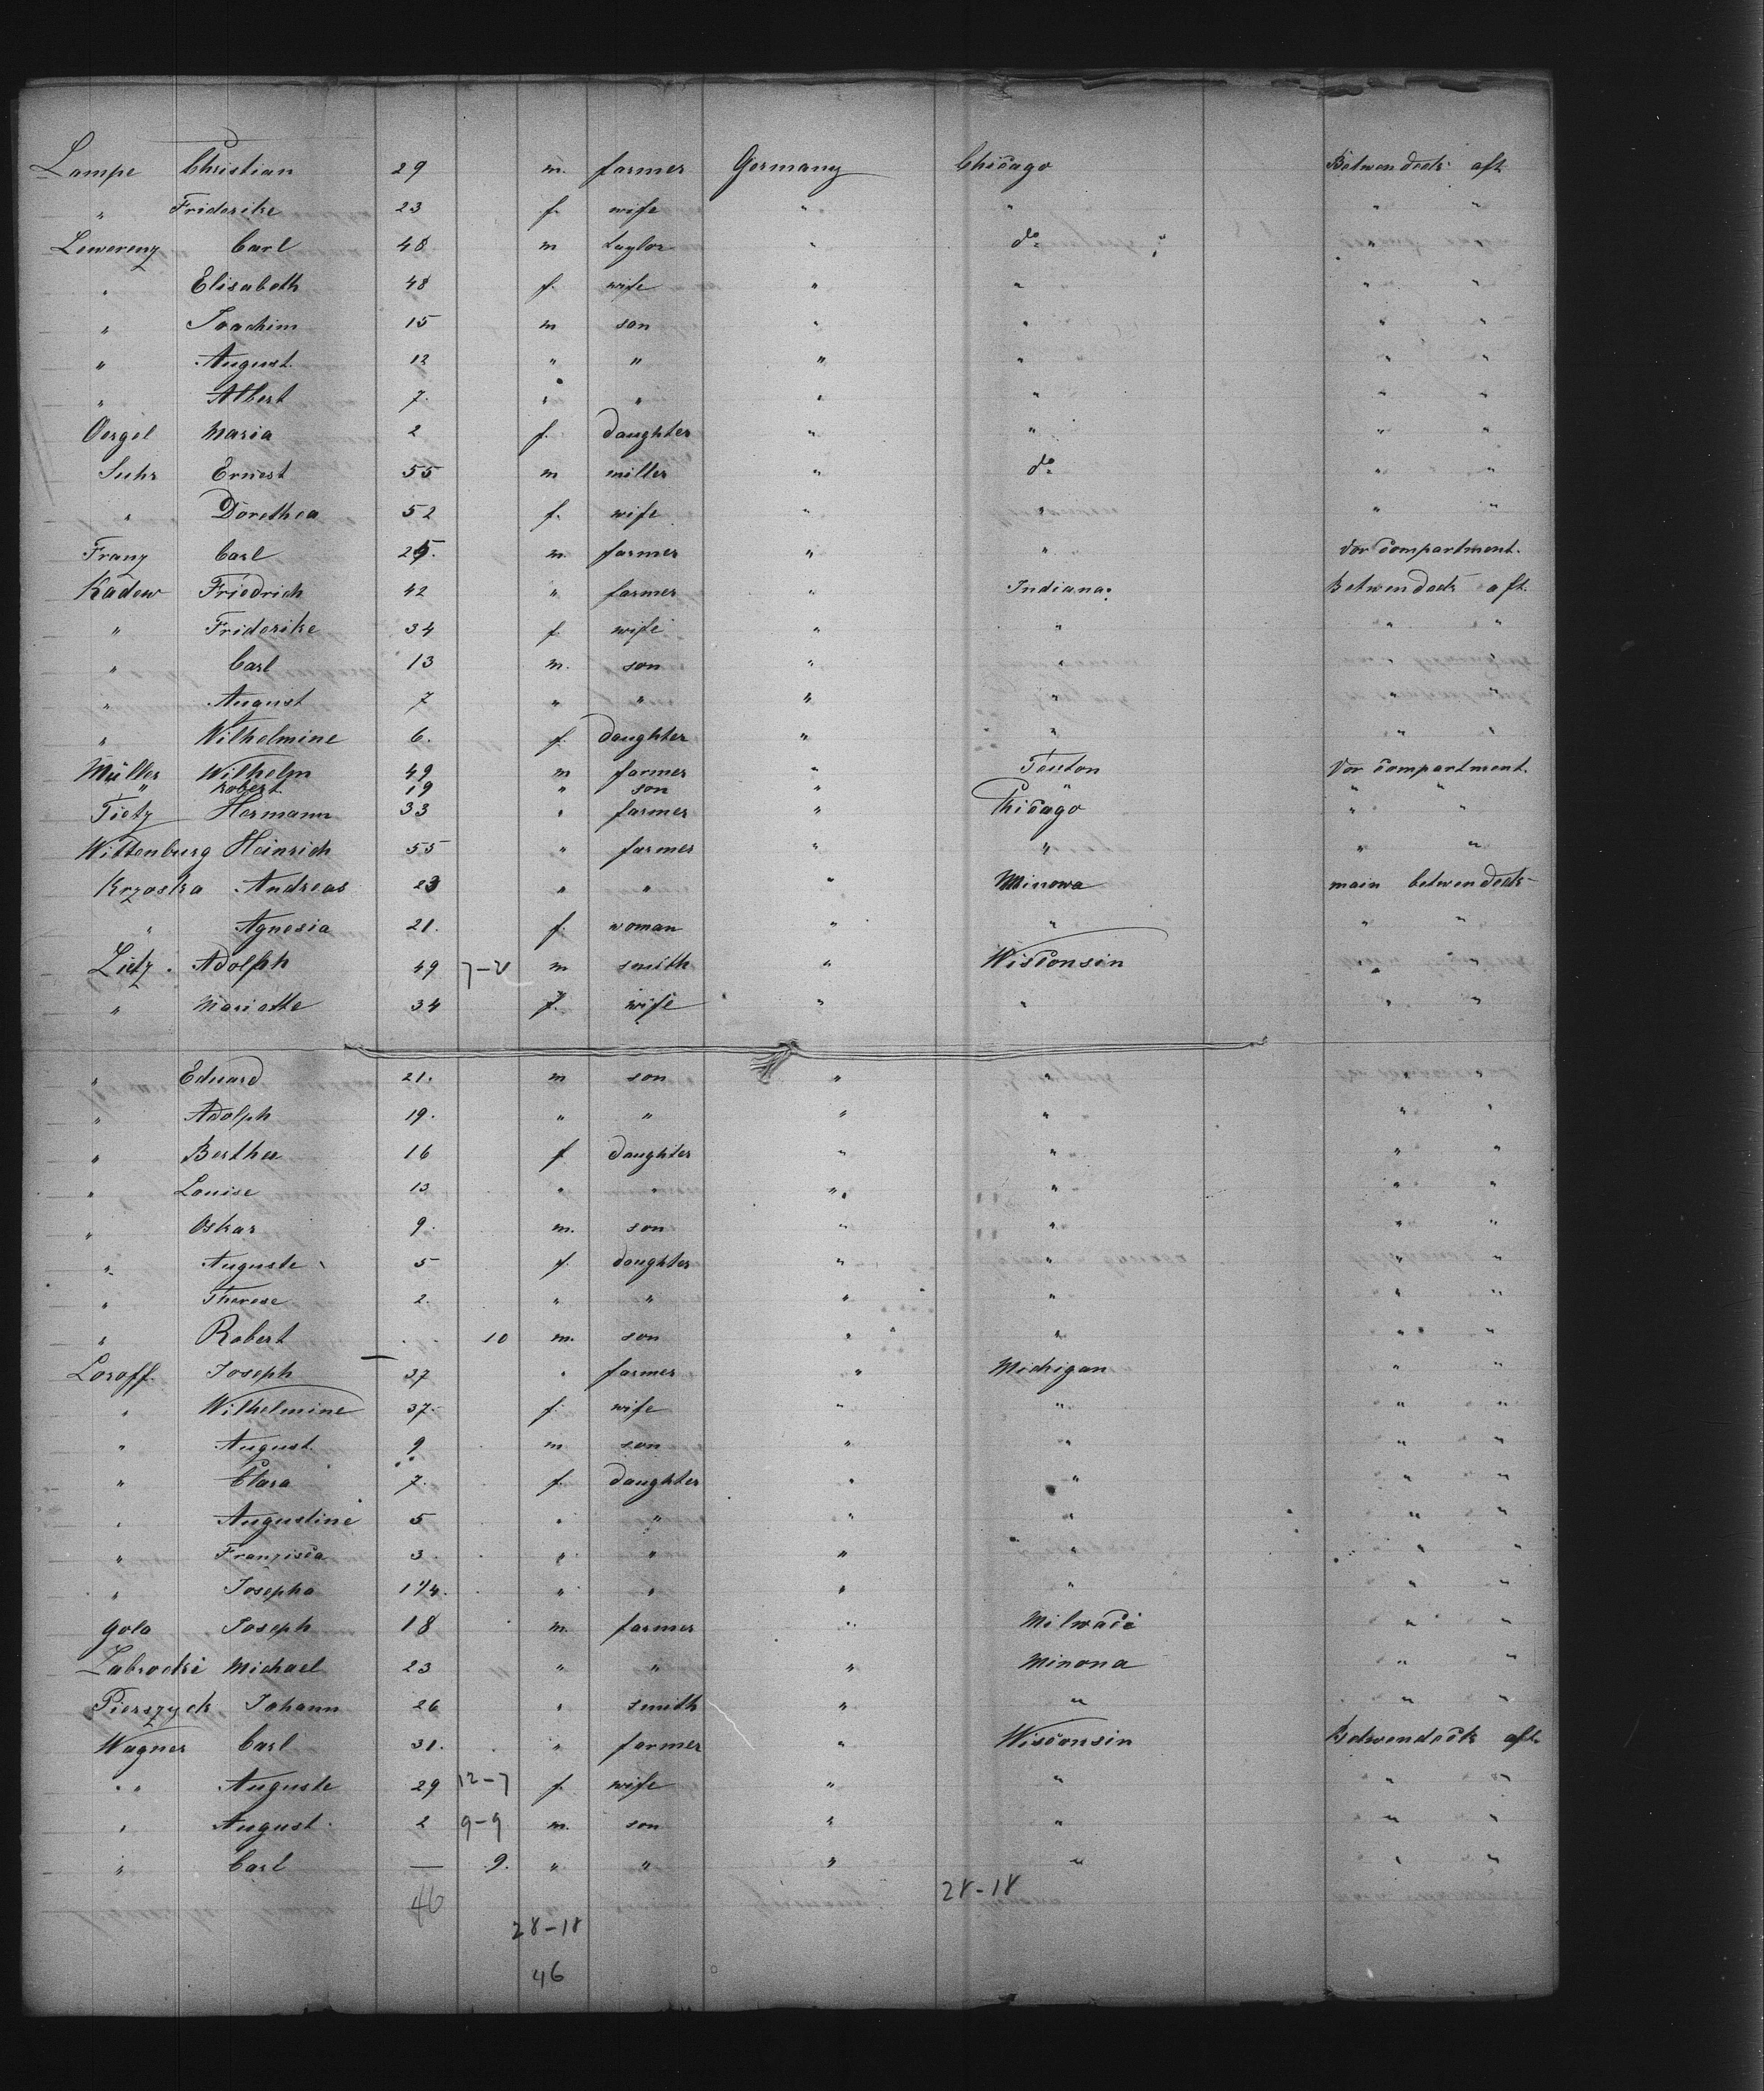 Lampe Christian 29 m. farmer Germany Chicago Betwendeck aft
" Friderike 23 f. wife " " " "
Lewerenz Carl 48 m taylor " do " "
" Elisabeth 48 f. wife " " " "
" Joachim 15 m son " " " "
" August 12 " " " " " "
" Albert 7. " " " " " "
Oergel Maria 2 f. daughter " " " "
Suhr Ernest 55 m miller " do " "
" Dorethea 52 f. wife " " " "
Franz Carl 25. m. farmer " " Vor compartment.
Kadow Friedrich 42 " farmer " Indiana. Betwendeck aft.
" Friderike 34 f. wife " " " "
" Carl 13 m. son " " " "
" August 7 " " " " " "
" Wilhelmine 6. f. daughter " " " "
Müller Wilhelm 49 m farmer " Teuton Vor compartment.
" Robert 19 " son " " " "
Tietz Hermann 33 " farmer " Chicago " "
Wittenburg Heinrich 55 " farmer " " " "
Krzoska Andreas 23 " " " Minowa main betwendeck
" Agnesia 21. f. woman " " " "
Lietz. Adolph 49 m smith " Wisconsin " "
" Mariatte 34 f. wife " " " "
" Eduard 21. m son " " " "
" Adolph 19. " " " " " "
" Bertha 16 f daughter " " " "
" Louise 13 " " " " " "
" Oskar 9. m. son " " " "
" Auguste 5 f. daughter " " " "
" Therese 2. " " " " " "
" Robert 10 m. son " " " "
Loroff Joseph 37 " farmer " Michigan " "
" Wilhelmine 37. f. wife " " " "
" August 9 m son " " " "
" Clara 7. f. daughter " " " "
" Augustine 5 " " " " " "
" Franzisca 3. " " " " " "
" Josepha 1 1/4. " " " " " "
Gola Joseph 18 m. farmer " Milwaci " "
Zabrocki Michael 23 " " " Minona " "
Pierszyck Johann 26 " smith " " " "
Wagner Carl 31. " farmer " Wisconsin Betwendeck aft
" Auguste 29 12-7 f. wife " " " "
" August 2 9-9 m. son " " " "
" Carl — 9. " " " " " "
28-18
46
28-18
46